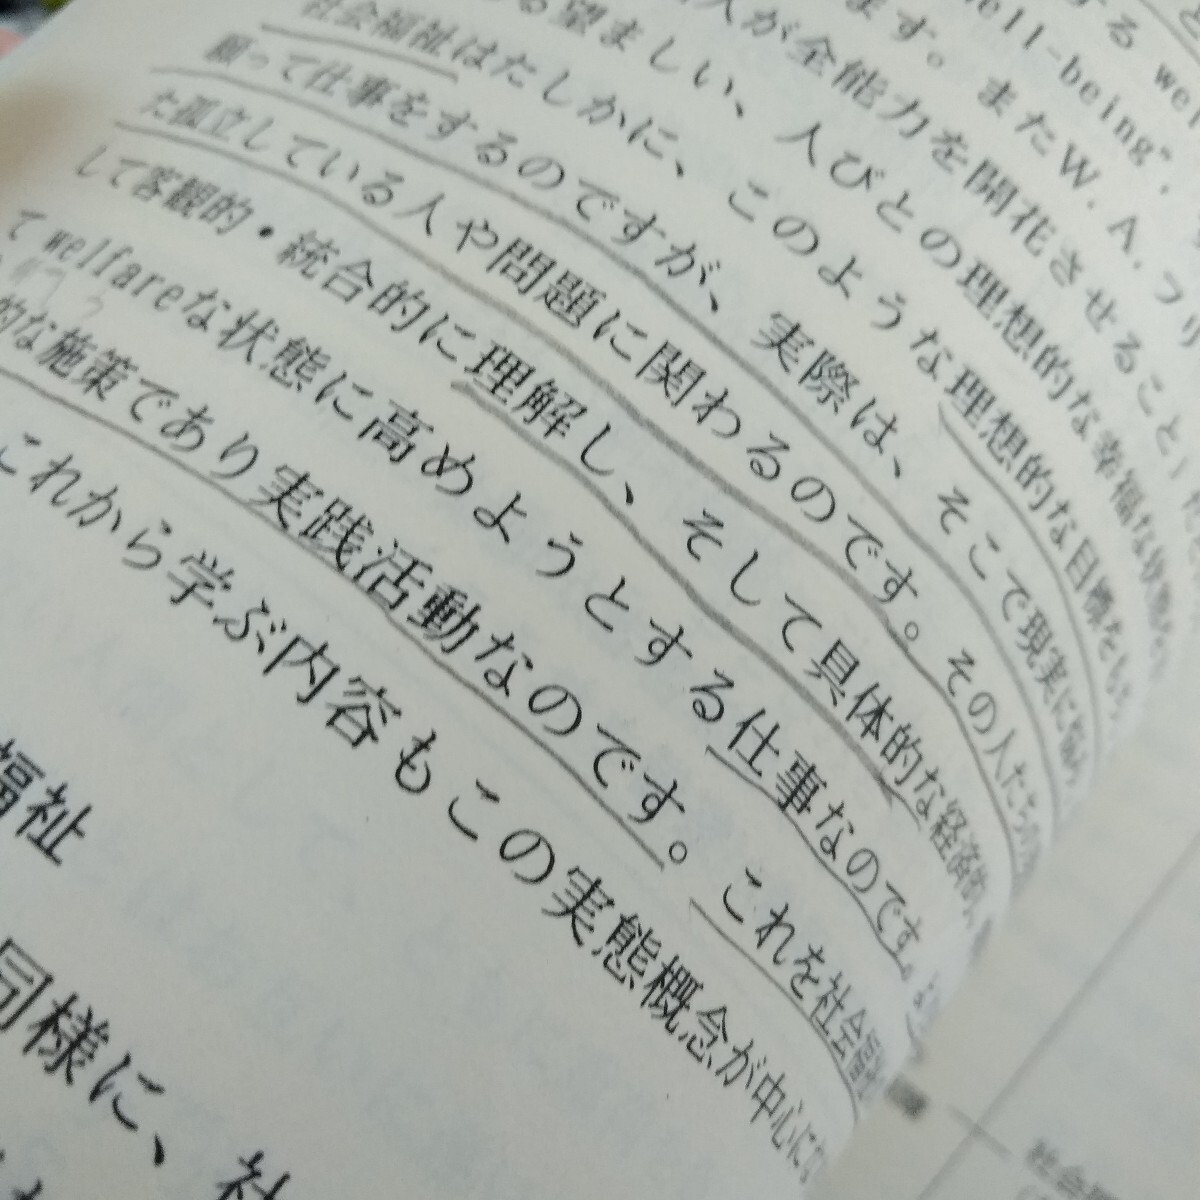 する wel
ell-being",
ます。またW.A.フリ
人が全能力を開花させること」
る望ましい、人びとの理想的な幸福な状態を
社会福祉はたしかに、このような理想的な目標をもち、
願って仕事をするのですが、実際は、そこで現実に悩み
た孤立している人や問題に関わるのです。その人たちの
して客観的・統合的に理解し、そして具体的な経済的、
て welfareな状態に高めようとする仕事なのです。
的な施策であり実践活動なのです。これを社会福
これから学ぶ内容もこの実態概念が中心にな
福祉
同様に、社
社会